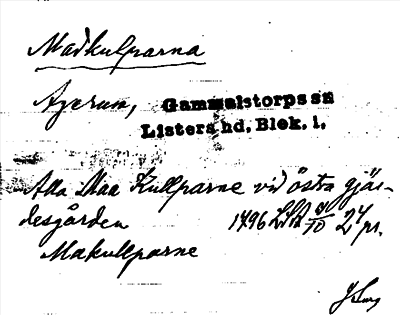 Madkulparna
Agerum, Gammalstorps sn
Listers hd. Blek. l.
Alla Maa Kullparne vid östra gjäs-
desgården 1796 LSA 24 pr.
Makullparne